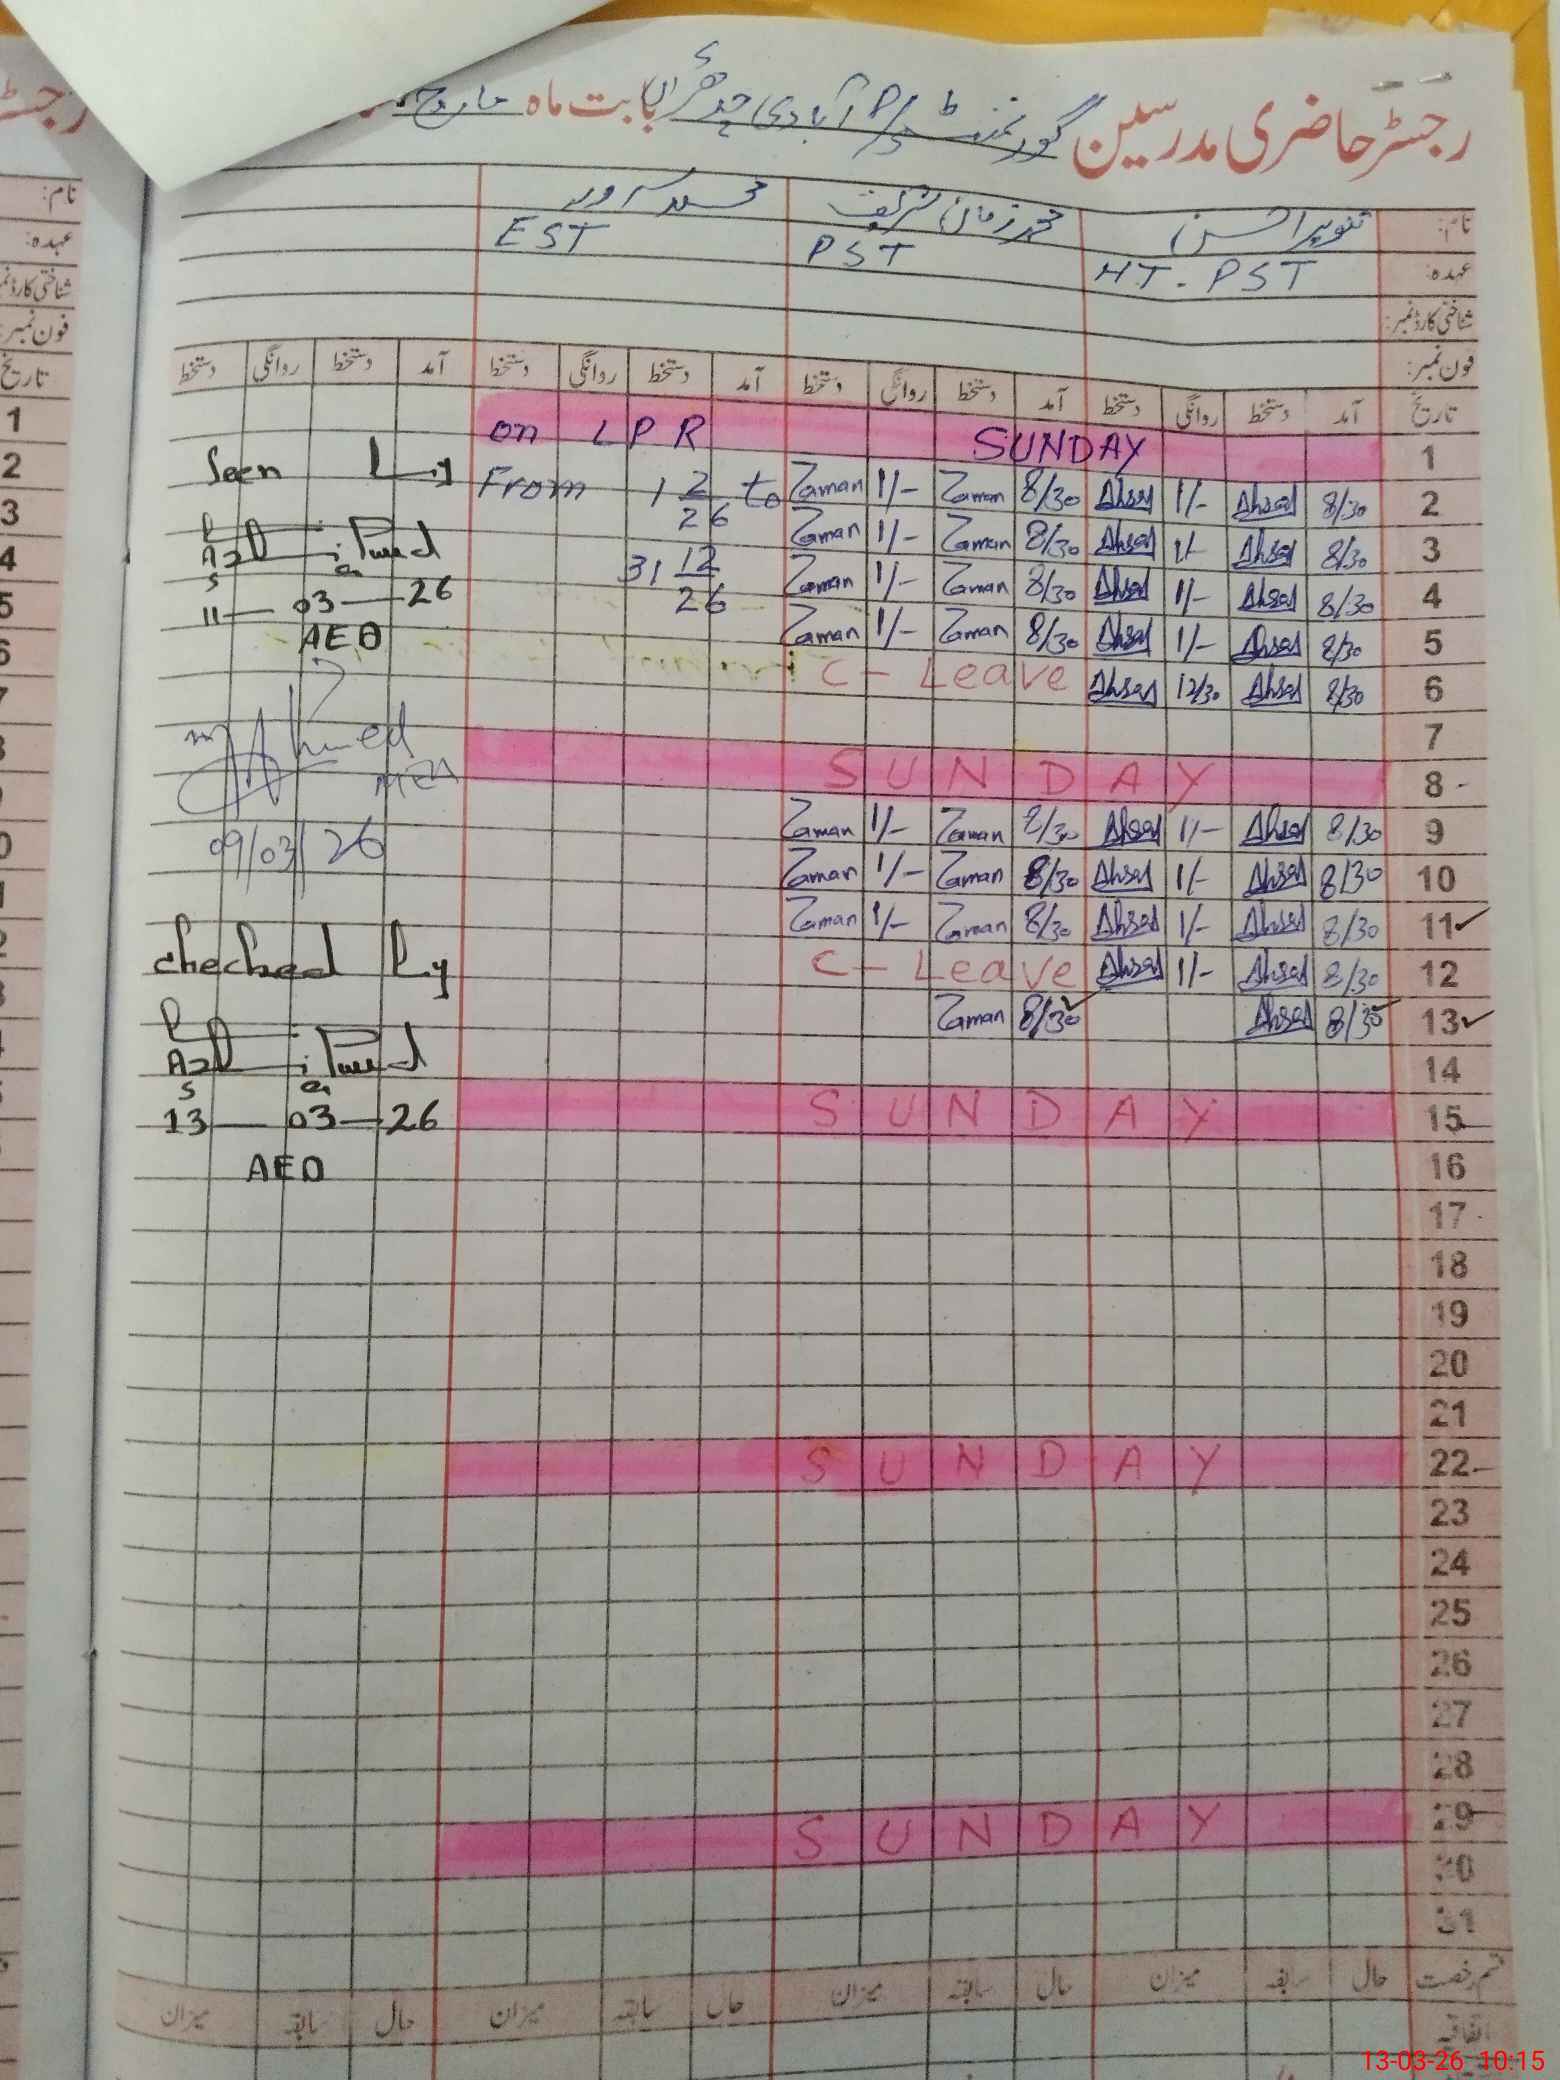 رجسٹر حاضری مدرسین گورنمنٹ P/S آبادی بابت ماہ مارچ
نام: تنویر احسن محمد زمان شریف محمد سرور
عہدہ: HT. PST PST EST
شناختی کارڈ نمبر:
فون نمبر:
تاریخ آمد دستخط روانگی دستخط آمد دستخط روانگی دستخط آمد دستخط روانگی دستخط آمد دستخط روانگی دستخط
on LPR SUNDAY 1
From 1 2/26 to Zaman 1/- Zaman 8/30 Ahsan 1/- Ahsan 8/30 2
Zaman 1/- Zaman 8/30 Ahsan 1/- Ahsan 8/30 3
31 12/26 Zaman 1/- Zaman 8/30 Ahsan 1/- Ahsan 8/30 4
Zaman 1/- Zaman 8/30 Ahsan 1/- Ahsan 8/30 5
C - Leave Ahsan 12/30 Ahsan 8/30 6
7
SUNDAY 8
Zaman 1/- Zaman 8/30 Ahsan 1/- Ahsan 8/30 9
Zaman 1/- Zaman 8/30 Ahsan 1/- Ahsan 8/30 10
Zaman 1/- Zaman 8/30 Ahsan 1/- Ahsan 8/30 11
C - Leave Ahsan 1/- Ahsan 8/30 12
Zaman 8/30 Ahsan 8/30 13
14
SUNDAY 15
16
17
18
19
20
21
SUNDAY 22
23
24
25
26
27
28
SUNDAY 29
30
31
قسم رخصت حال سابقہ میزان حال سابقہ میزان حال سابقہ میزان حال سابقہ میزان
اتفاقیہ
Seen by
11-03-26
AEO
09/03/26
checked by
13-03-26
AEO
نام:
عہدہ:
شناختی کارڈ نمبر
فون نمبر:
تاریخ
1
2
3
4
5
6
13-03-26 10:15